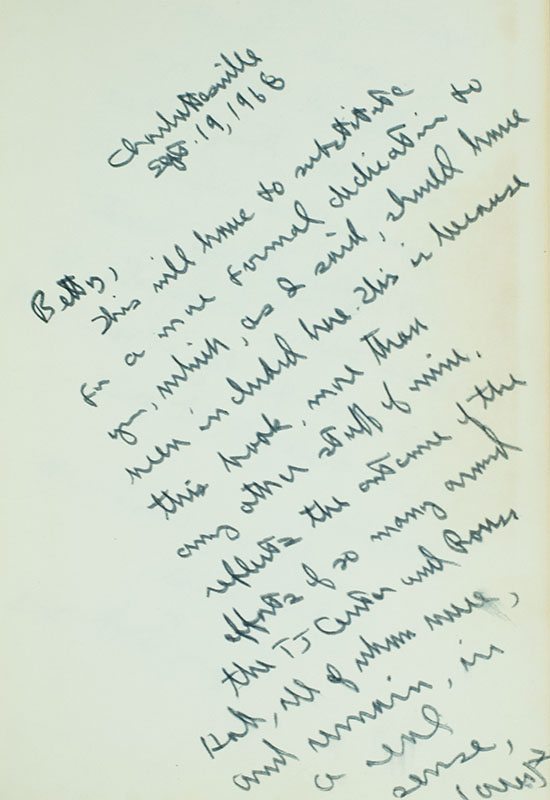 Charlottesville
Sept. 19, 1968
Betty,
This will have to substitute
for a more formal dedication to
you, which, as I said, should have
been included here. This is because
this book, more than
any other stuff of mine,
reflects the outcome of the
efforts of so many around
the TJ Center and Rouss
Hall, all of whom were,
and remain, in
a real
sense,